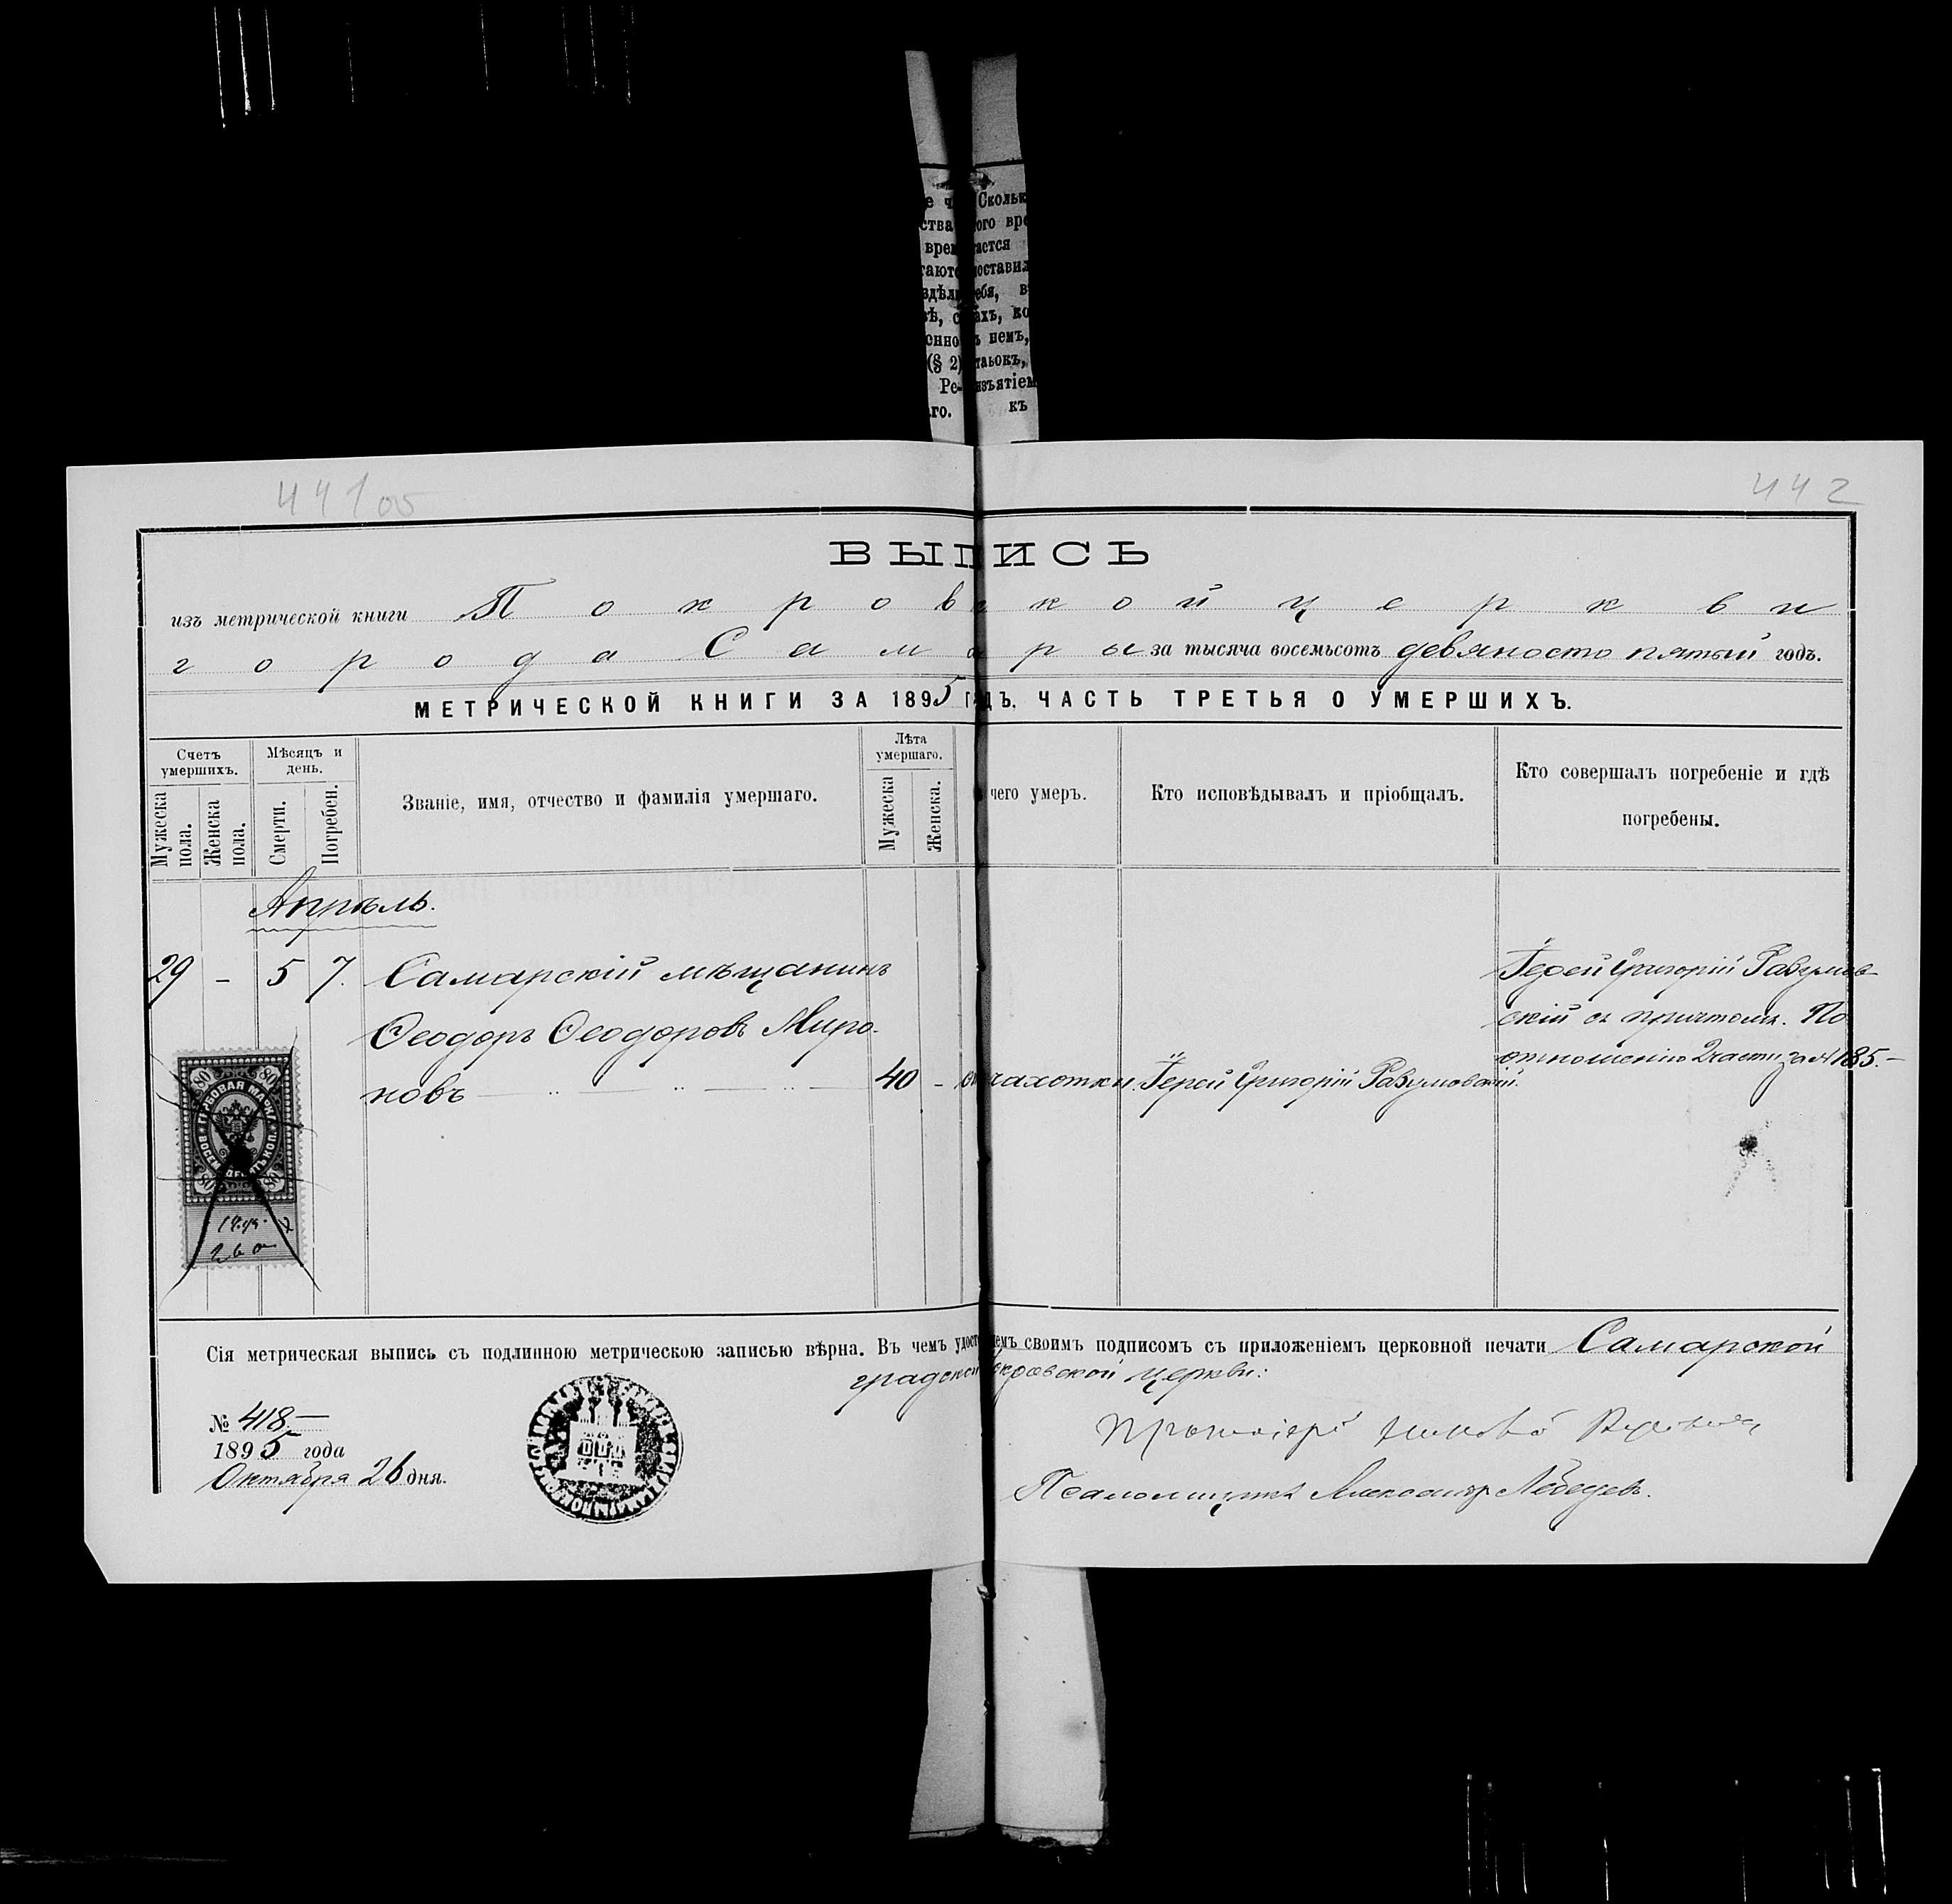 е ч Скольк
ства ого вре
врем ается
гають поставил
здѣл ебя, в
вѣ, с ахъ, ко
енно ъ немъ,
(§ 2) таьокъ,
Ре- изъятіем
го. къ
441 об 442
ВЫПИСЬ
изъ метрической книги Покровской церкви
города Самары за тысяча восемьсотъ девяносто пятый годъ.
МЕТРИЧЕСКОЙ КНИГИ ЗА 1895 ГОДЪ. ЧАСТЬ ТРЕТЬЯ О УМЕРШИХЪ.
Счетъ умершихъ.
Мужеска пола.
Женска пола.
Мѣсяцъ и день.
Смерти.
Погребен.
Званіе, имя, отчество и фамилія умершаго.
Лѣта умершаго.
Мужеска
Женска.
чего умеръ.
Кто исповѣдывалъ и пріобщалъ.
Кто совершалъ погребеніе и гдѣ
погребены.
Апрѣль.
29 – 5 7. Самарскій мѣщанинъ
Ѳеодоръ Ѳеодоровъ Миро-
новъ 40 – чахотки. Іерей Григорій Разумовскій.
Іерей Григорій Разумов-
скій съ причтомъ. По
отношенію 2 части за № 185.–
80 80
ГЕРБОВАЯ МАРКА
ВОСЕМЬДЕСЯТЪ КОП.
80 80
Сія метрическая выпись съ подлинною метрическою записью вѣрна. Въ чемъ удостовѣряемъ своимъ подписомъ съ приложеніемъ церковной печати Самарской
градской Покровской церкви:
№ 418–
1895 года
Октября 26 дня.
Протоіерей
Псаломщикъ Александръ Лебедевъ.